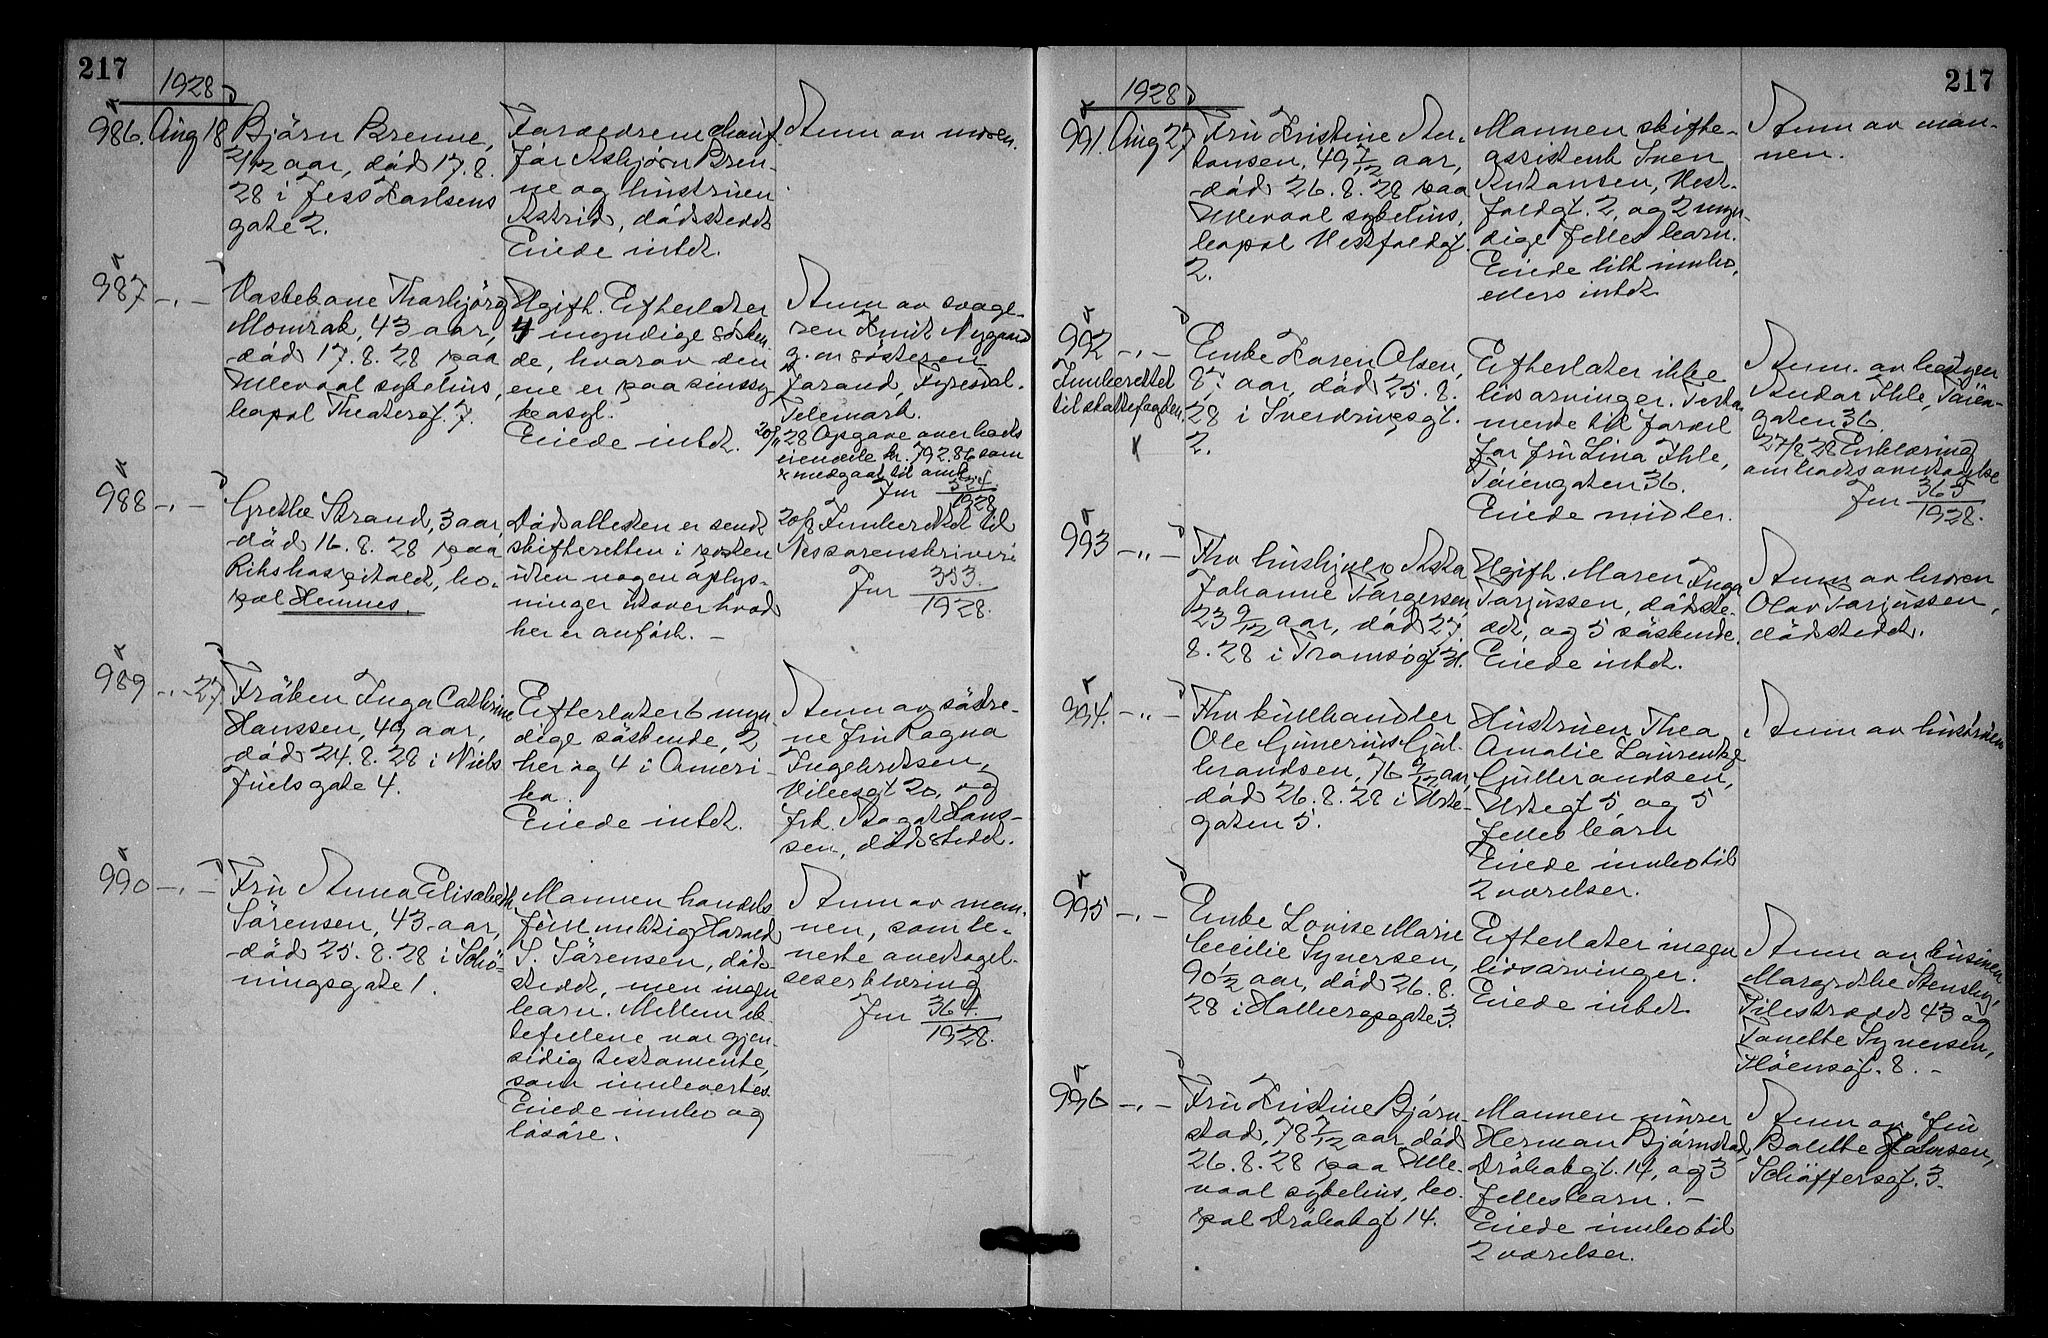 217
1928
986. Aug 18
Björn Brenne,
2/12 aar, död 17.8.
28 i Jess Karlsens
gate 2.
Foreldrene chauf-
før Asbjørn Bren-
ne og hustruen
Astrid, dödsstedet
Eiede intet.
Anm av moren.
987 -"-
Vaskekone Thorbjörg
Momrak, 43 aar,
död 17.8.28 paa
Ullevaal sykehus,
bopæl Theatergt. 7.
Ugift. Efterlater
4 myndige sösken-
de, hvorav den
ene er paa sinssy-
keasyl.
Eiede intet.
Anm av svoge-
ren Knut Nygaard
g. m søsteren
Jorand, Fyresdal.
Telemark.
20/11 28 Opgave over boets
eiendele kr. 792.86 som
er medgaat til omk.
Jnr 324/1928
988 -"-
Grethe Strand, 3 aar,
död 16.8.28 paa
Rikshospitalet, bo-
pæl Hemnes.
Dödsattesten er sendt
skifteretten i posten
uten nogen oplys-
ninger utover hvad
her er anfört. -
20/8 Innberettet til
Nes sorenskriveri
Jnr 353/1928.
989 -"- 27.
Fröken Inga Cathrine
Hanssen, 49 aar,
död 24.8.28 i Niels
Juels gate 4.
Efterlater 6 myn-
dige söskende, 2
her og 4 i Ameri-
ka.
Eiede intet.
Anm av söstre-
ne fru Ragna
Ingebretsen,
Vibesgt 20, og
frk. Aagot Hans-
sen, dödsstedet.
990 -"-
Fru Anna Elisabeth
Sörensen, 43 aar,
död 25.8.28 i Schö-
ningsgate 1.
Mannen handels
fullmektig Harald
S. Sörensen, döds-
stedet, men ingen
barn. Mellem ek-
tefellene var gjen-
sidig testamente,
som innlevertes.
Eiede innbo og
lösöre.
Anm av man-
nen, som le-
verte overtagel-
seserklæring
Jnr 364/1928.
217
1928
991. Aug 27
Fru Kristine An-
tonsen, 49 7/12 aar,
död 26.8.28 paa
Ullevaal sykehus,
bopæl Vestfoldgt.
2.
Mannen skifte-
assistent Sven
Antonsen, Vest-
foldgt. 2, og 2 myn-
dige felles barn.
Eiede litt innbo,
ellers intet
Anm av man-
nen.
992 -"-
Innberettet
til skattefogden.
Enke Karen Olsen,
aar, död 25.8.
28 i Sverdrupsgt.
2.
Efterlater ikke
livsarvinger. Testa-
mente til fordel
for fru Lina Ihle,
Töiengaten 36.
Eiede midler.
Anm. av
Andor Ihle, Töien-
gaten 36.
27/8 28 Erklæring
om boets overtagelse
Jnr 365/1928.
993 -"-
Fhv hushjelp Asta
Johanne Torgersen
23 9/12 aar, död 27.
8.28 i Tromsögt
Ugift. Moren Inga
Torjussen, dödste-
det, og 5 söskende.
Eiede intet.
Anm av broren
Olav Torjussen,
dödstedet.
994. -"-
Fhv kullhandler
Ole Gunerius Gul-
brandsen, 76 9/12 aar,
död 26.8.28 i Urte-
gaten 5.
Hustruen Thea
Amalie Laurentze
Gulbrandsen,
Urtegt 5 og 5
felles barn
Eiede innbo til
2 værelser.
Anm av hustruen
995 -"-
Enke Lovise Marie
Cecilie Syversen,
90 1/2 aar, död 26.8.
28 i Hallingsgate 3.
Efterlater ingen
livsarvinger.
Eiede intet
Anm av kusinen
Margrethe Stensby,
Pilestrædet 43 og
Tanette Syversen,
Fløensgt. 8. -
996 -"-
Fru Kristine Bjørn-
stad, 78 7/12 aar, död
26.8.28 paa Ulle-
vaal sykehus, bo-
pæl Dröbakgt 14.
Mannen murer
Herman Bjørnstad,
Dröbakgt. 14, og 3
felles barn. -
Eiede innbo til
2 værelser.
Anm av fru
Bolette Holmsen,
Schöffersgt. 3.